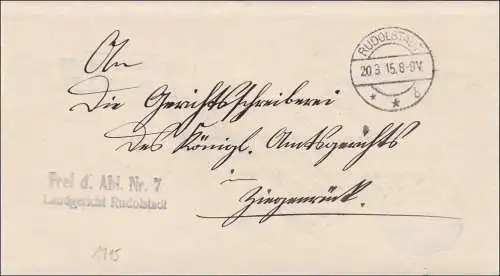 An
RUDOLSTADT
20.3.15.8-9V.
* * b
Die Gerichtsschreiberei
des Königl. Amtsgerichts
in
Ziegenrück.
Frei d. Abl. Nr. 7
Landgericht Rudolstadt
1915